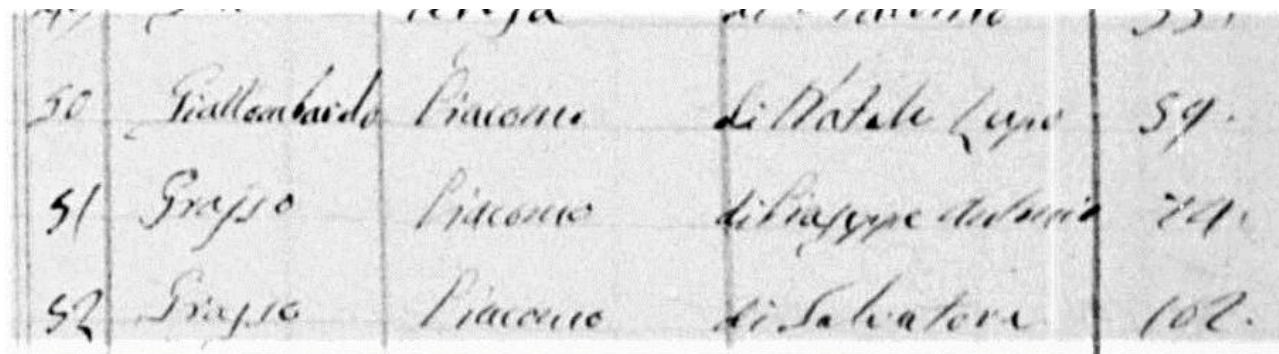 50 Giallombardo Giacomo di Natale Lupo 59.
51 Grasso Giacomo di Giuseppe Antonio 74.
52 Grasso Giacomo di Salvatore 102.